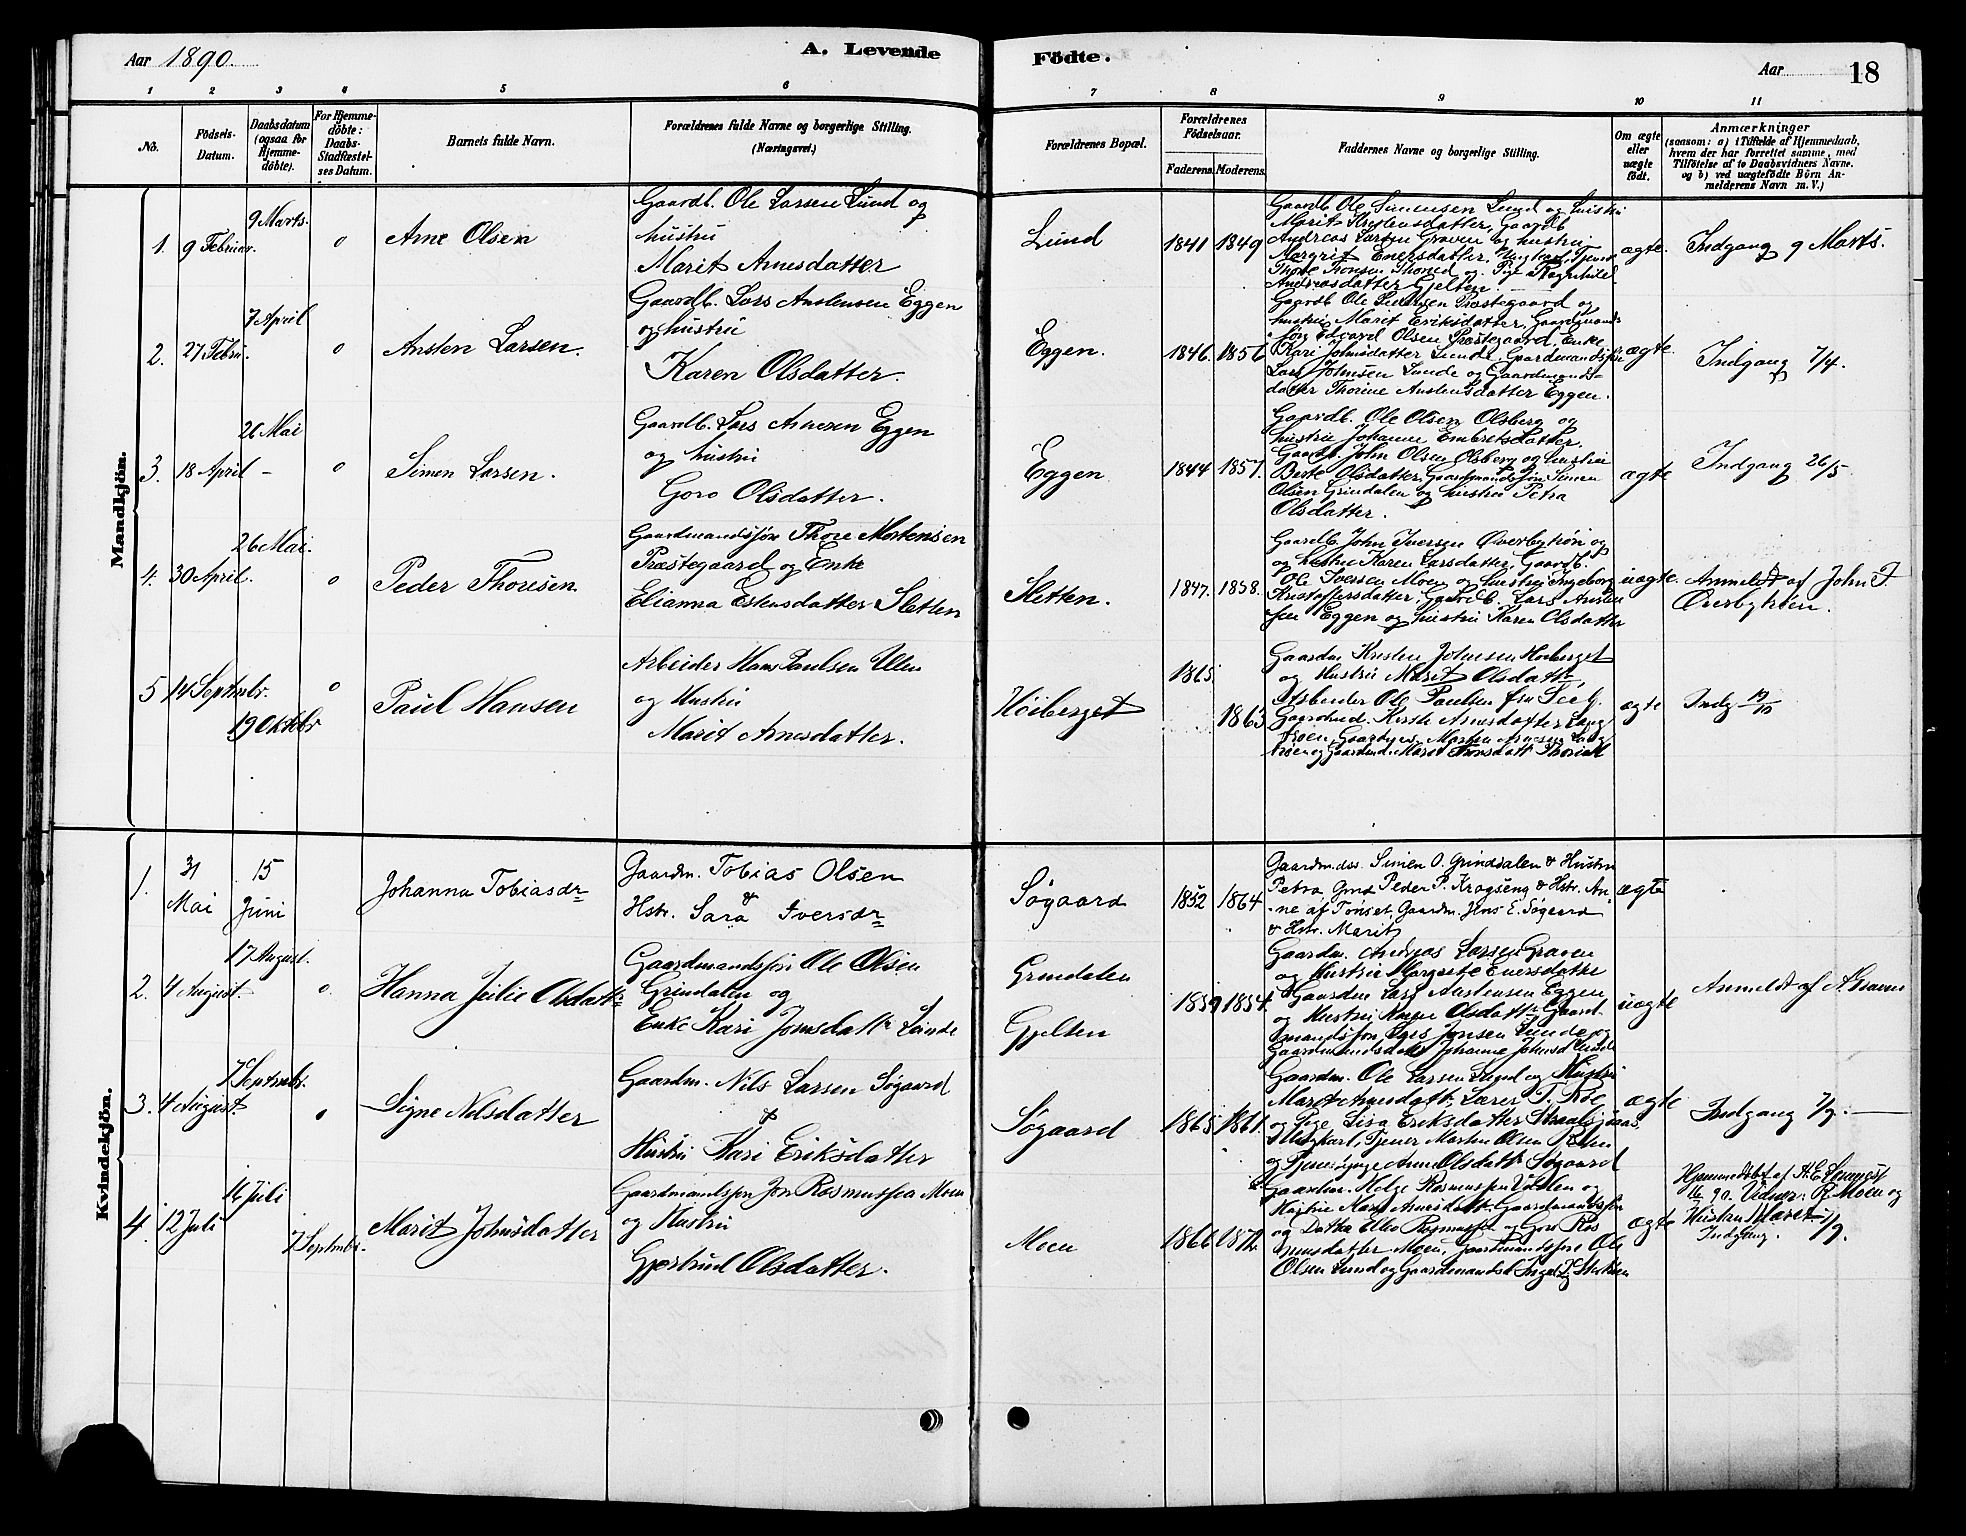 Aar 1890.
A. Levende
Födte.
Aar
18
1 2 3 4 5 6 7 8 9 10 11
No.
Födsels-
Datum.
Daabsdatum
(ogsaa for
Hjemme-
döbte).
For Hjemme-
döbte:
Daabs-
Stadfæstel-
ses Datum.
Barnets fulde Navn.
Forældrenes fulde Navne og borgerlige Stilling.
(Næringsvei.)
Forældrenes Bopæl.
Forældrenes
Födselsaar.
Faderens. Moderens.
Faddernes Navne og borgerlige Stilling.
Om ægte
eller
uægte
födt.
Anmærkninger
(saasom: a) i Tilfælde af Hjemmedaab,
hvem der har forrettet samme, med
Tilföielse af to Daabsvidners Navne.
og b) ved uægtefödte Börn An-
melderens Navn m. V.)
Mandkjön.
1.
9 Februar.
9 Marts.
0
Arne Olsen
Gaardb. Ole Larsen Lund og
hustru
Marit Arnesdatter
Lund
1841
1849
Gaardb. Ole Simensen Lund og hustru
Marit Kristensdatter, Gaardb
Andreas Larsen Graven og hustru
Margrit Enersdatter,
Thore Tronsen Thoried og Pige Ragnhild
Andreasdatter Gjelten.
ægte.
Indgang 9 Marts.
2.
27 Febru.
7 April
0
Ansten Larsen.
Gaardb. Lars Anstensen Eggen
og hustru
Karen Olsdatter.
Eggen.
1846.
1856
Gaardb Ole Præstegaard og
hustru Marit Eriksdatter, Gaardmands-
søn Edvard Olsen Præstegaard, Enke
Kari Johnsdatter Lunde, Gaardmandssøn
Lars Johnsen Lunde og Gaardmands-
datter Thorine Anstensdatter Eggen.
ægte.
Indgang 7/4.
3.
18 April
26 Mai
-
0
Simen Larsen.
Gaardb. Lars Arnesen Eggen
og hustru
Goro Olsdatter.
Eggen
1844
1857.
Gaardb. Ole Olsen Olsberg og
hustru Johanne Embretsdatter,
Gaardb. John Olsen Olsberg og hustru
Berte Olsdatter, Gaardmandssøn Simen
Olsen Grindalen og hustru Petra
Olsdatter.
ægte
Indgang 26/5
4.
30 April.
26 Mai.
0
Peder Thoresen
Gaardmandssøn Thore Mortensen
Præstegaard og Enke
Elianna Estensdatter Sletten
Sletten.
1847.
1858.
Gaardb. John Iversen Øverbyhøn og
og hustru Karen Larsdatter, Gaardb.
Ole Iversen Moen og hustru Ingeborg
Kristoffersdatter, Gaardb. Lars Ansten
sen Eggen og hustru Karen Olsdatter
uægte.
Anmeldt af John I.
5
14 Septmbr.
19 Oktbr
0
Paul Hansen
Arbeider Hans Paulsen Ulen
og Hustru
Marit Arnesdatter.
Høiberget
1865.
1863
Gaardm Kristen Johnsen Høiberget
og Hustru Marit Olsdatter,
Arbeider Ole Paulsen fra
Kirste Arnesdatter Lang
Morten Arnesen Lang
Marit Thoried
ægte
Indg 19/10
Kvindekjön.
1.
31
Mai
15
Juni
Johanna Tobiasdr
Gaardm. Tobias Olsen
&
Hstr. Sara Iversdr
Søgaard
1852
1864
Gaardm.dss. Simen O. Grinddalen & Hustru
Petra Gmd Peder P. Krogseng & Hstr. An-
ne af Tønset, Gaardm. Jens E. Søgaard
& Hstr. Marit
ægte
2.
4 August.
17 August.
0.
Hanna Julie Olsdatter
Gaardmandssøn Ole Olsen
Grindalen og
Enke Kari Jonsdattr Lunde
Grindalen
Gjelten
1859
1854.
Gaardm. Andreas Larsen Graven
og Hustru Margrete Enersdatter
Gaardm Lars Anstensen Eggen
og Hustru Karen Olsdattr Gaard-
mandssøn Lars Jonsen Lunde og
Gaardmandsdatr Johanne Johnsd Lunde
uægte
Anmeldt af A. Graven
3.
4 August.
7 Septmbr.
0
Signe Nilsdatter
Gaardm. Nils Larsen Søgaard
&
Hustru Kari Eriksdatter
Søgaard
1865
1861.
Gaardm. Ole Larsen Lund og Hustru
Marit Arnesdattr, Lærer T. Røe
og Pige Lisa Eriksdatter
Ungkarl, Tjener Martin Olsen
og Tjenespige Anne Olsdattr Søgaard
ægte
Indgang 7/9.
4.
12 Juli
16 Juli
7 Septmbr.
Marit Johnsdatter
Gaardmandssøn Jon Rasmussen Moen
og Hustru
Gjertrud Olsdatter.
Moen
1866
Gaardm. Helge Rasmussen og
Hustru Arnesdattr Gaardmandssøn
og Datter Rasmussen og Goro Ras
musdatter Moen, Gaardmandssøn Ole
Olsen Lund og Gaardmandsd.
ægte
Hjemmedøbt af
90. Vidner: R. Moen og
Hustru Marit
Indgang. 7/9.